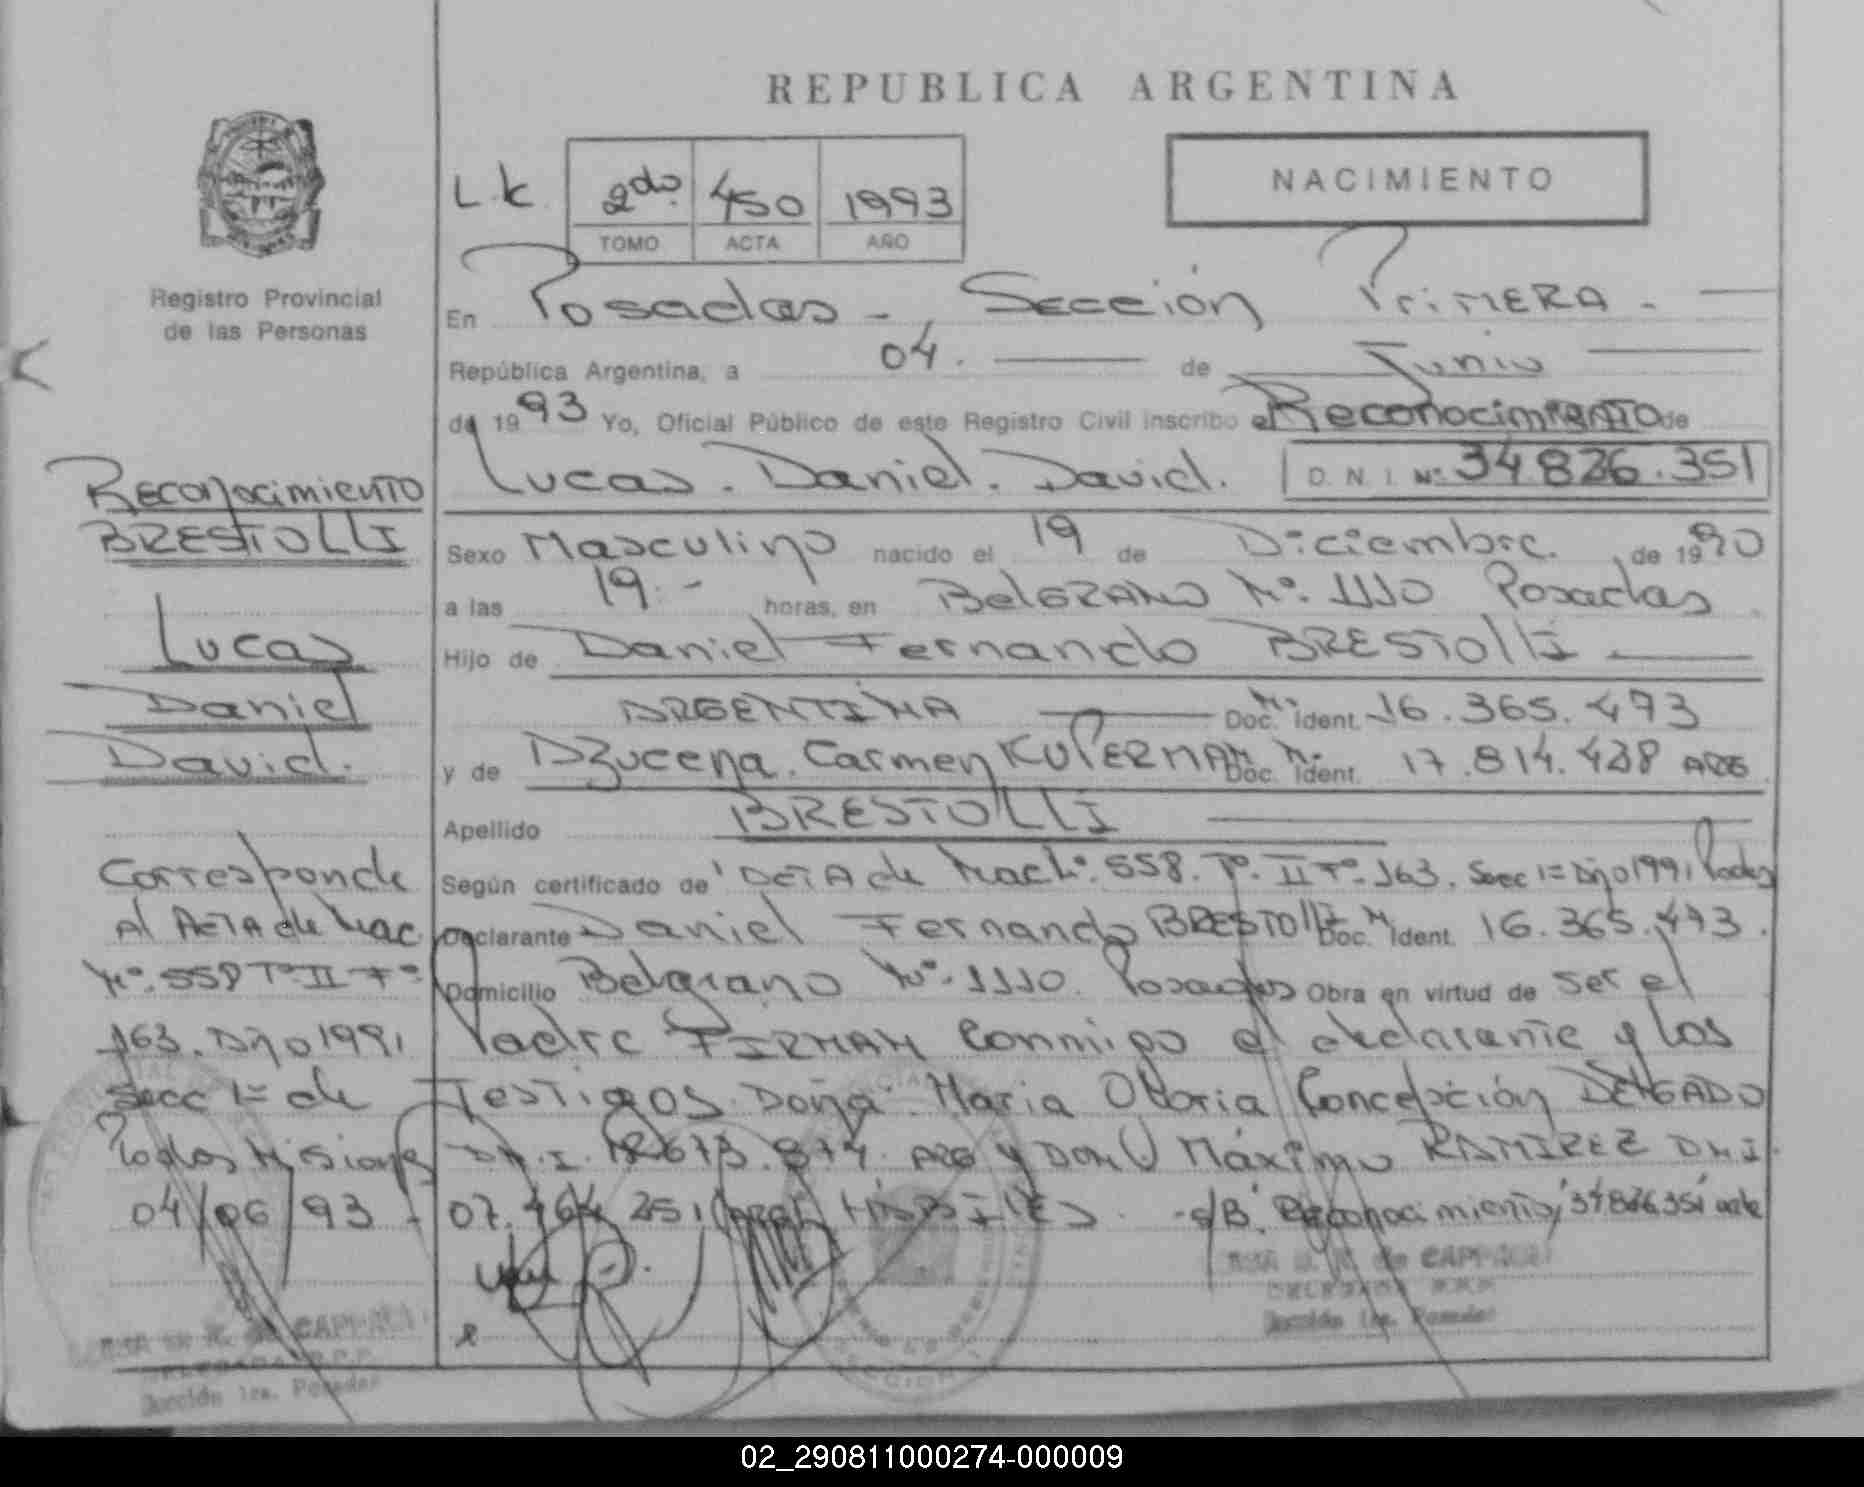 REPUBLICA ARGENTINA
NACIMIENTO
L.K.
2do. 450 1993
TOMO ACTA AÑO
Registro Provincial
de las Personas
En Posadas - Sección PriMERA -
República Argentina, a 04. de Junio
de 1993 Yo, Oficial Público de este Registro Civil inscribo el Reconocimiento de
Lucas. Daniel. David. D. N. I. Nº 34.826.351
Sexo Masculino nacido el 19 de Diciembre. de 1990
a las 19.- horas, en BelGRANO Nº. 1110 Posadas
Hijo de Daniel Fernando BRESTOllI
ARGENTINA Doc. Ident. 16.365.473
y de Carmen KUPERMAN Doc. Ident. 17.814.438 ARG
Apellido BRESTOLLI
Según certificado de ACTA de Nac Nº. 558. Tº. II Fº. 163. Secc 1= Año 1991 Pdas
Declarante Daniel Fernando BRESTOllI Doc. Ident. 16.365.473.
Domicilio Belgrano Nº. 1110. Posadas Obra en virtud de ser el
Padre FIRMAN Conmigo el declarante y los
Testigos Doña Maria Concepción DELGADO
D.N.I. ARG y DON Máximo RAMIREZ D.N.I.
07. 251 ARG HABILES. -s/B. Reconocimiento, 34826351 vale
Reconocimiento
BRESTOLLI
Lucas
Daniel
David.
Corresponde
Al ACTA de Nac
Nº. 558 Tº II Fº
163. Año 1991
Secc 1= de
Pdas Misiones
04/06/93 -
DELEGADA R.P.P.
Sección 1ra. Posadas
DELEGADA R.P.P.
Sección 1ra. Posadas
02_290811000274-000009